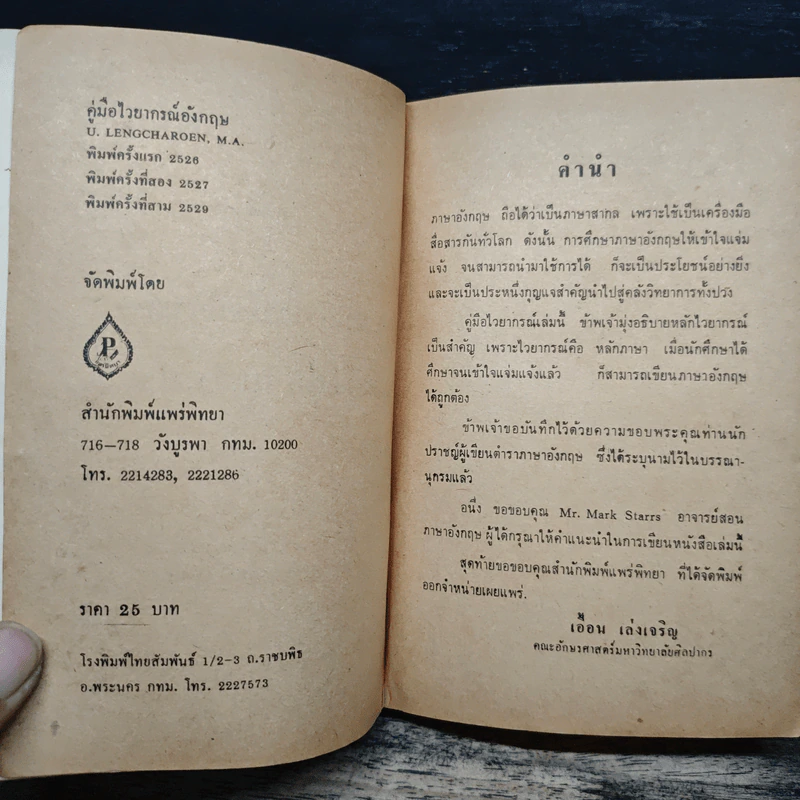 คู่มือไวยากรณ์อังกฤษ
U. LENGCHAROEN, M.A.
พิมพ์ครั้งแรก 2526
พิมพ์ครั้งที่สอง 2527
พิมพ์ครั้งที่สาม 2529
จัดพิมพ์โดย
P
สำนักพิมพ์แพร่พิทยา
716–718 วังบูรพา กทม. 10200
โทร. 2214283, 2221286
ราคา 25 บาท
โรงพิมพ์ไทยสัมพันธ์ 1/2-3 ถ.ราชบพิธ
อ.พระนคร กทม. โทร. 2227573
คำนำ
ภาษาอังกฤษ ถือได้ว่าเป็นภาษาสากล เพราะใช้เป็นเครื่องมือ
สื่อสารกันทั่วโลก ดังนั้น การศึกษาภาษาอังกฤษให้เข้าใจแจ่ม
แจ้ง จนสามารถนำมาใช้การได้ ก็จะเป็นประโยชน์อย่างยิ่ง
และจะเป็นประหนึ่งกุญแจสำคัญนำไปสู่คลังวิทยาการทั้งปวง
คู่มือไวยากรณ์เล่มนี้ ข้าพเจ้ามุ่งอธิบายหลักไวยากรณ์
เป็นสำคัญ เพราะไวยากรณ์คือ หลักภาษา เมื่อนักศึกษาได้
ศึกษาจนเข้าใจแจ่มแจ้งแล้ว ก็สามารถเขียนภาษาอังกฤษ
ได้ถูกต้อง
ข้าพเจ้าขอบันทึกไว้ด้วยความขอบพระคุณท่านนัก
ปราชญ์ผู้เขียนตำราภาษาอังกฤษ ซึ่งได้ระบุนามไว้ในบรรณา-
นุกรมแล้ว
อนึ่ง ขอขอบคุณ Mr. Mark Starrs อาจารย์สอน
ภาษาอังกฤษ ผู้ได้กรุณาให้คำแนะนำในการเขียนหนังสือเล่มนี้
สุดท้ายขอขอบคุณสำนักพิมพ์แพร่พิทยา ที่ได้จัดพิมพ์
ออกจำหน่ายเผยแพร่.
เอื้อน เล่งเจริญ
คณะอักษรศาสตร์มหาวิทยาลัยศิลปากร